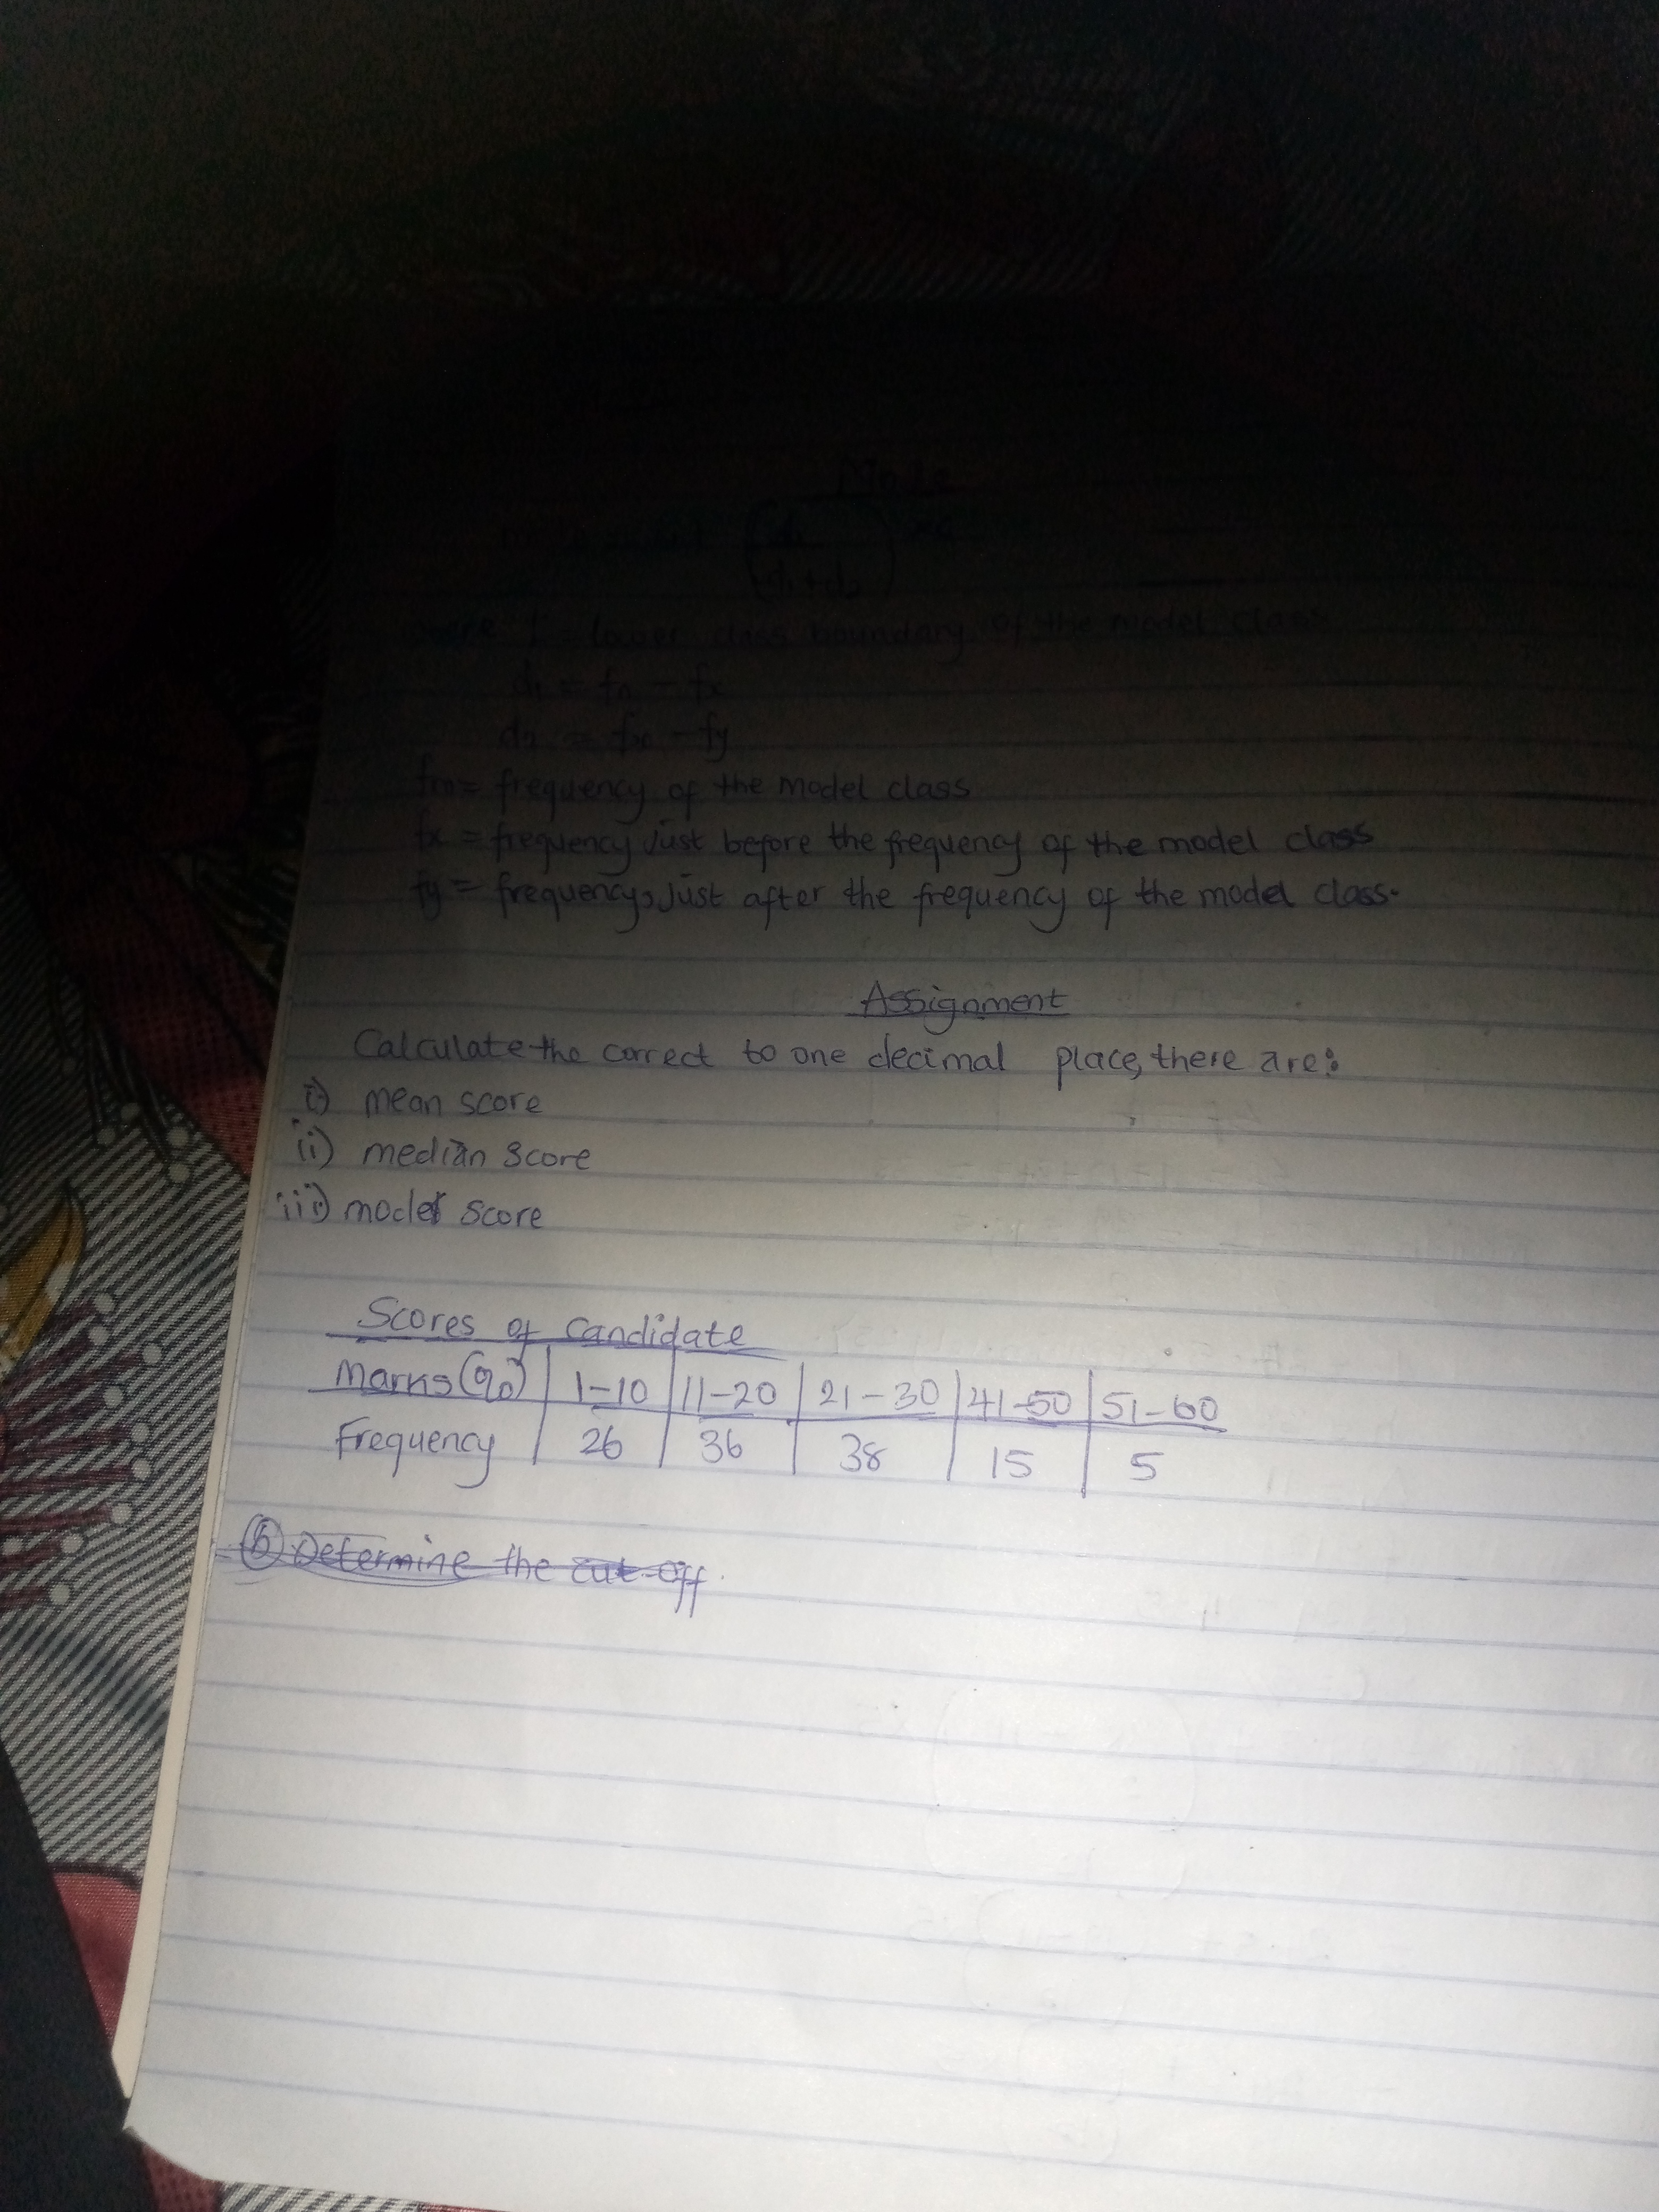 Mode
(d1 / d1+d2)
where L = lower class boundary of the model class
d1 = fm - fx
d2 = fm - fy
fm = frequency of the model class
fx = frequency just before the frequency of the model class
fy = frequency, just after the frequency of the model class.
Assignment
Calculate the correct to one decimal place, there are:
i) mean score
ii) median score
iii) model score
Scores of candidate
Marks (%) | 1-10 | 11-20 | 21-30 | 41-50 | 51-60
Frequency | 26 | 36 | 38 | 15 | 5
(b) Determine the cut-off